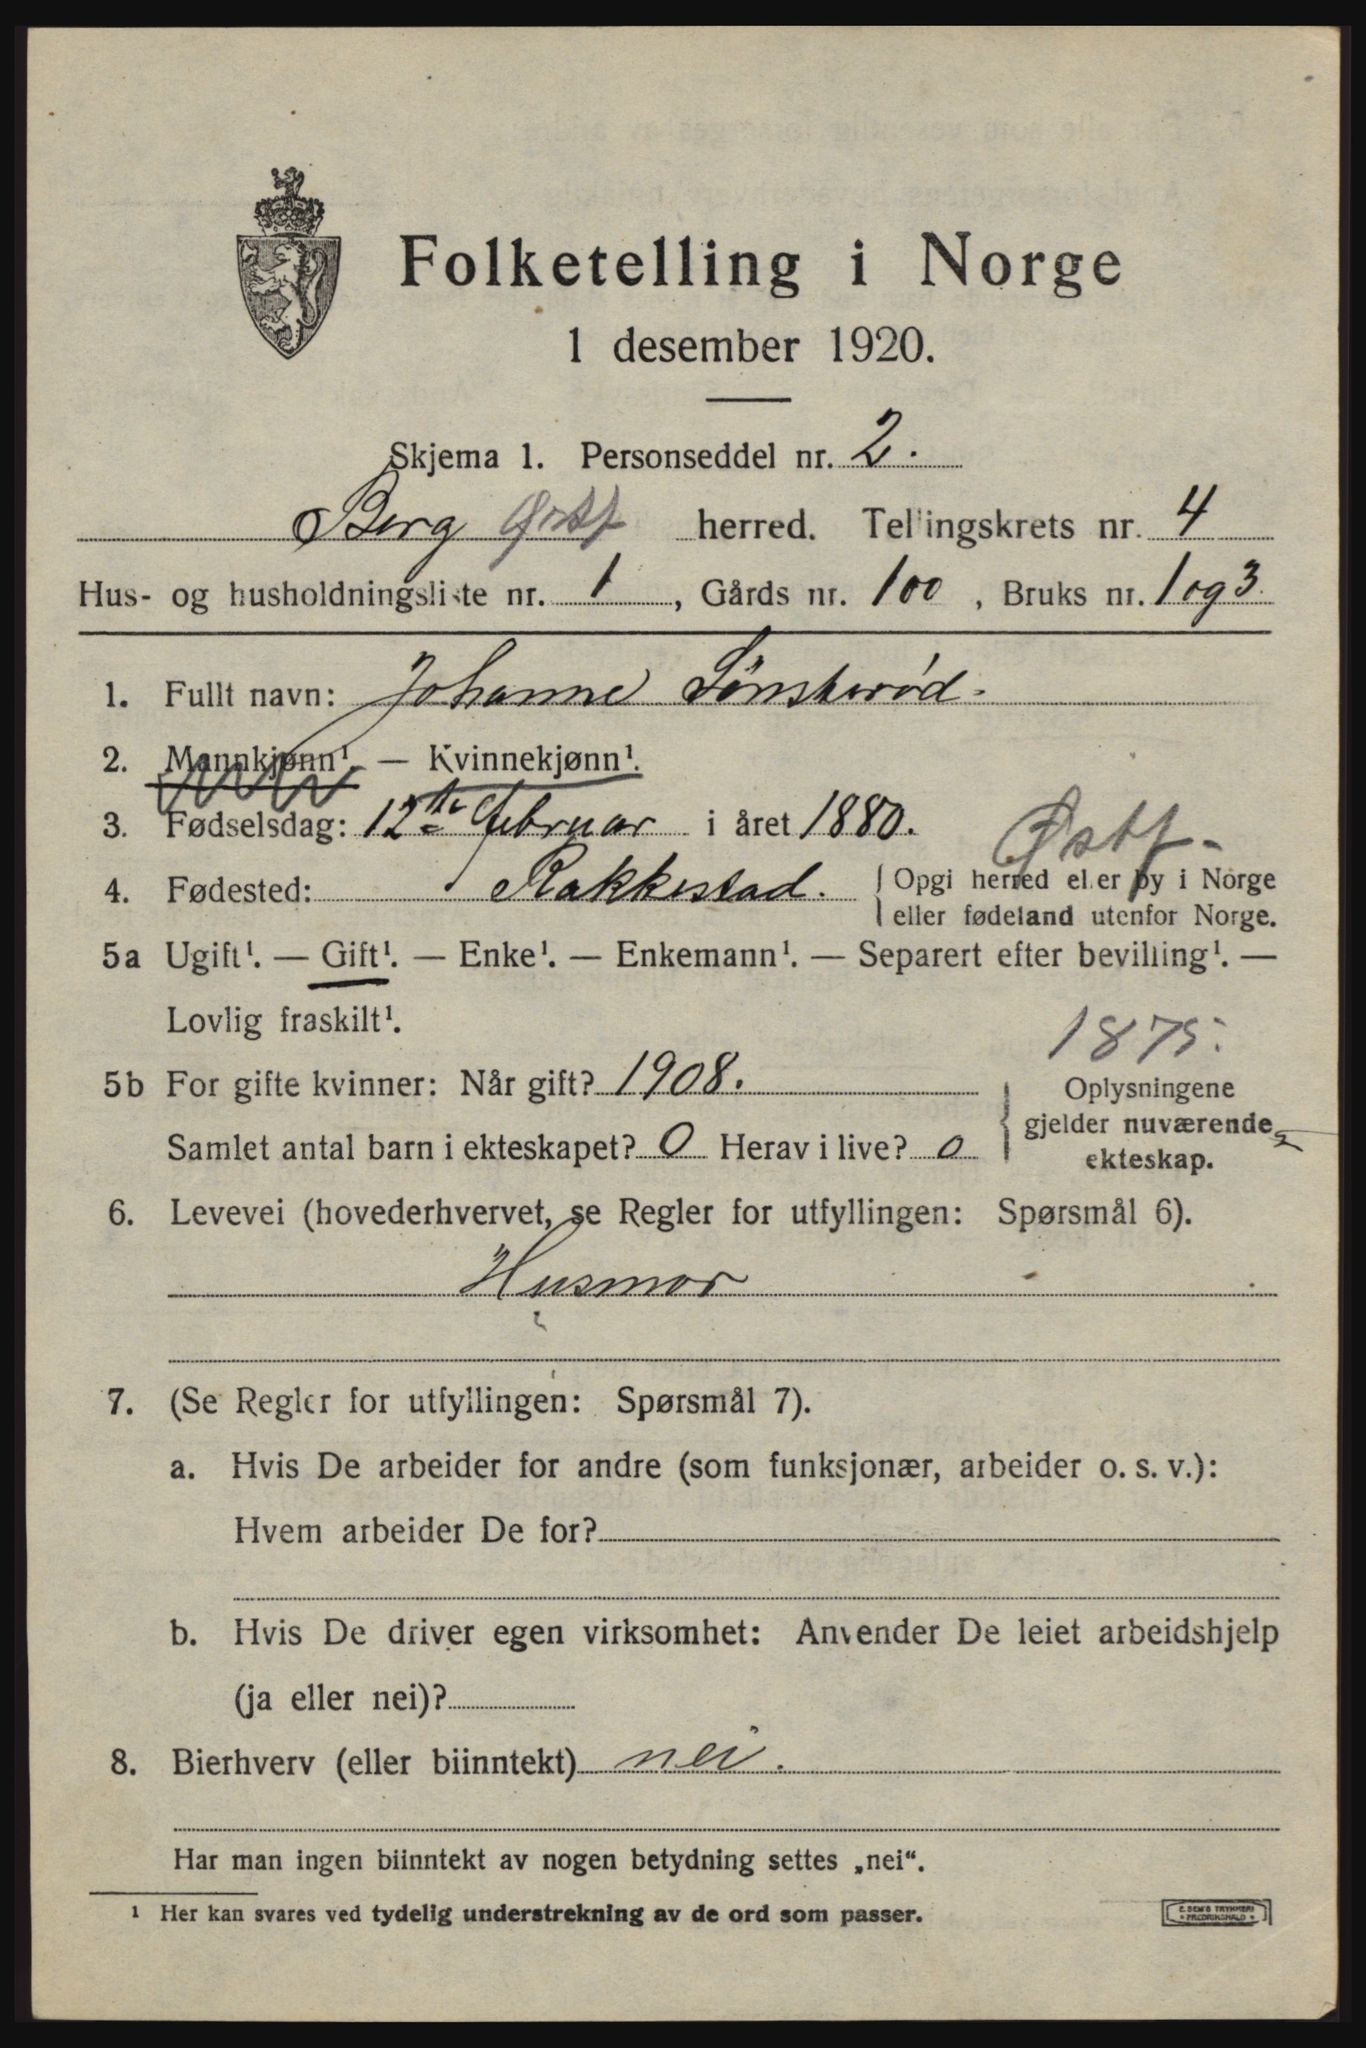 Folketelling i Norge
1 desember 1920.
Skjema 1. Personseddel nr. 2.
Berg Østf herred. Tellingskrets nr. 4
Hus- og husholdningsliste nr. 1, Gårds nr. 100, Bruks nr. 1 og 3.
1. Fullt navn: Johanne Sønsterød.
2. Mannkjønn¹. — Kvinnekjønn¹.
3. Fødselsdag: 12te februar i året 1880.
Østf-
4. Fødested: Rakkestad. Opgi herred eller by i Norge
eller fødeland utenfor Norge.
5a Ugift¹. — Gift¹. — Enke¹. — Enkemann¹. — Separert efter bevilling¹. —
Lovlig fraskilt¹.
1875.
5b For gifte kvinner: Når gift? 1908. Oplysningene
gjelder nuværende
Samlet antal barn i ekteskapet? 0 Herav i live? 0
ekteskap.
6. Levevei (hovederhvervet, se Regler for utfyllingen: Spørsmål 6).
Husmor
7. (Se Regler for utfyllingen: Spørsmål 7).
a. Hvis De arbeider for andre (som funksjonær, arbeider o. s. v.):
Hvem arbeider De for?
b. Hvis De driver egen virksomhet: Anvender De leiet arbeidshjelp
(ja eller nei)?
8. Bierhverv (eller biinntekt) nei.
Har man ingen biinntekt av nogen betydning settes „nei“.
¹ Her kan svares ved tydelig understrekning av de ord som passer.
E. SEM'S TRYKKERI
• FREDRIKSHALD •